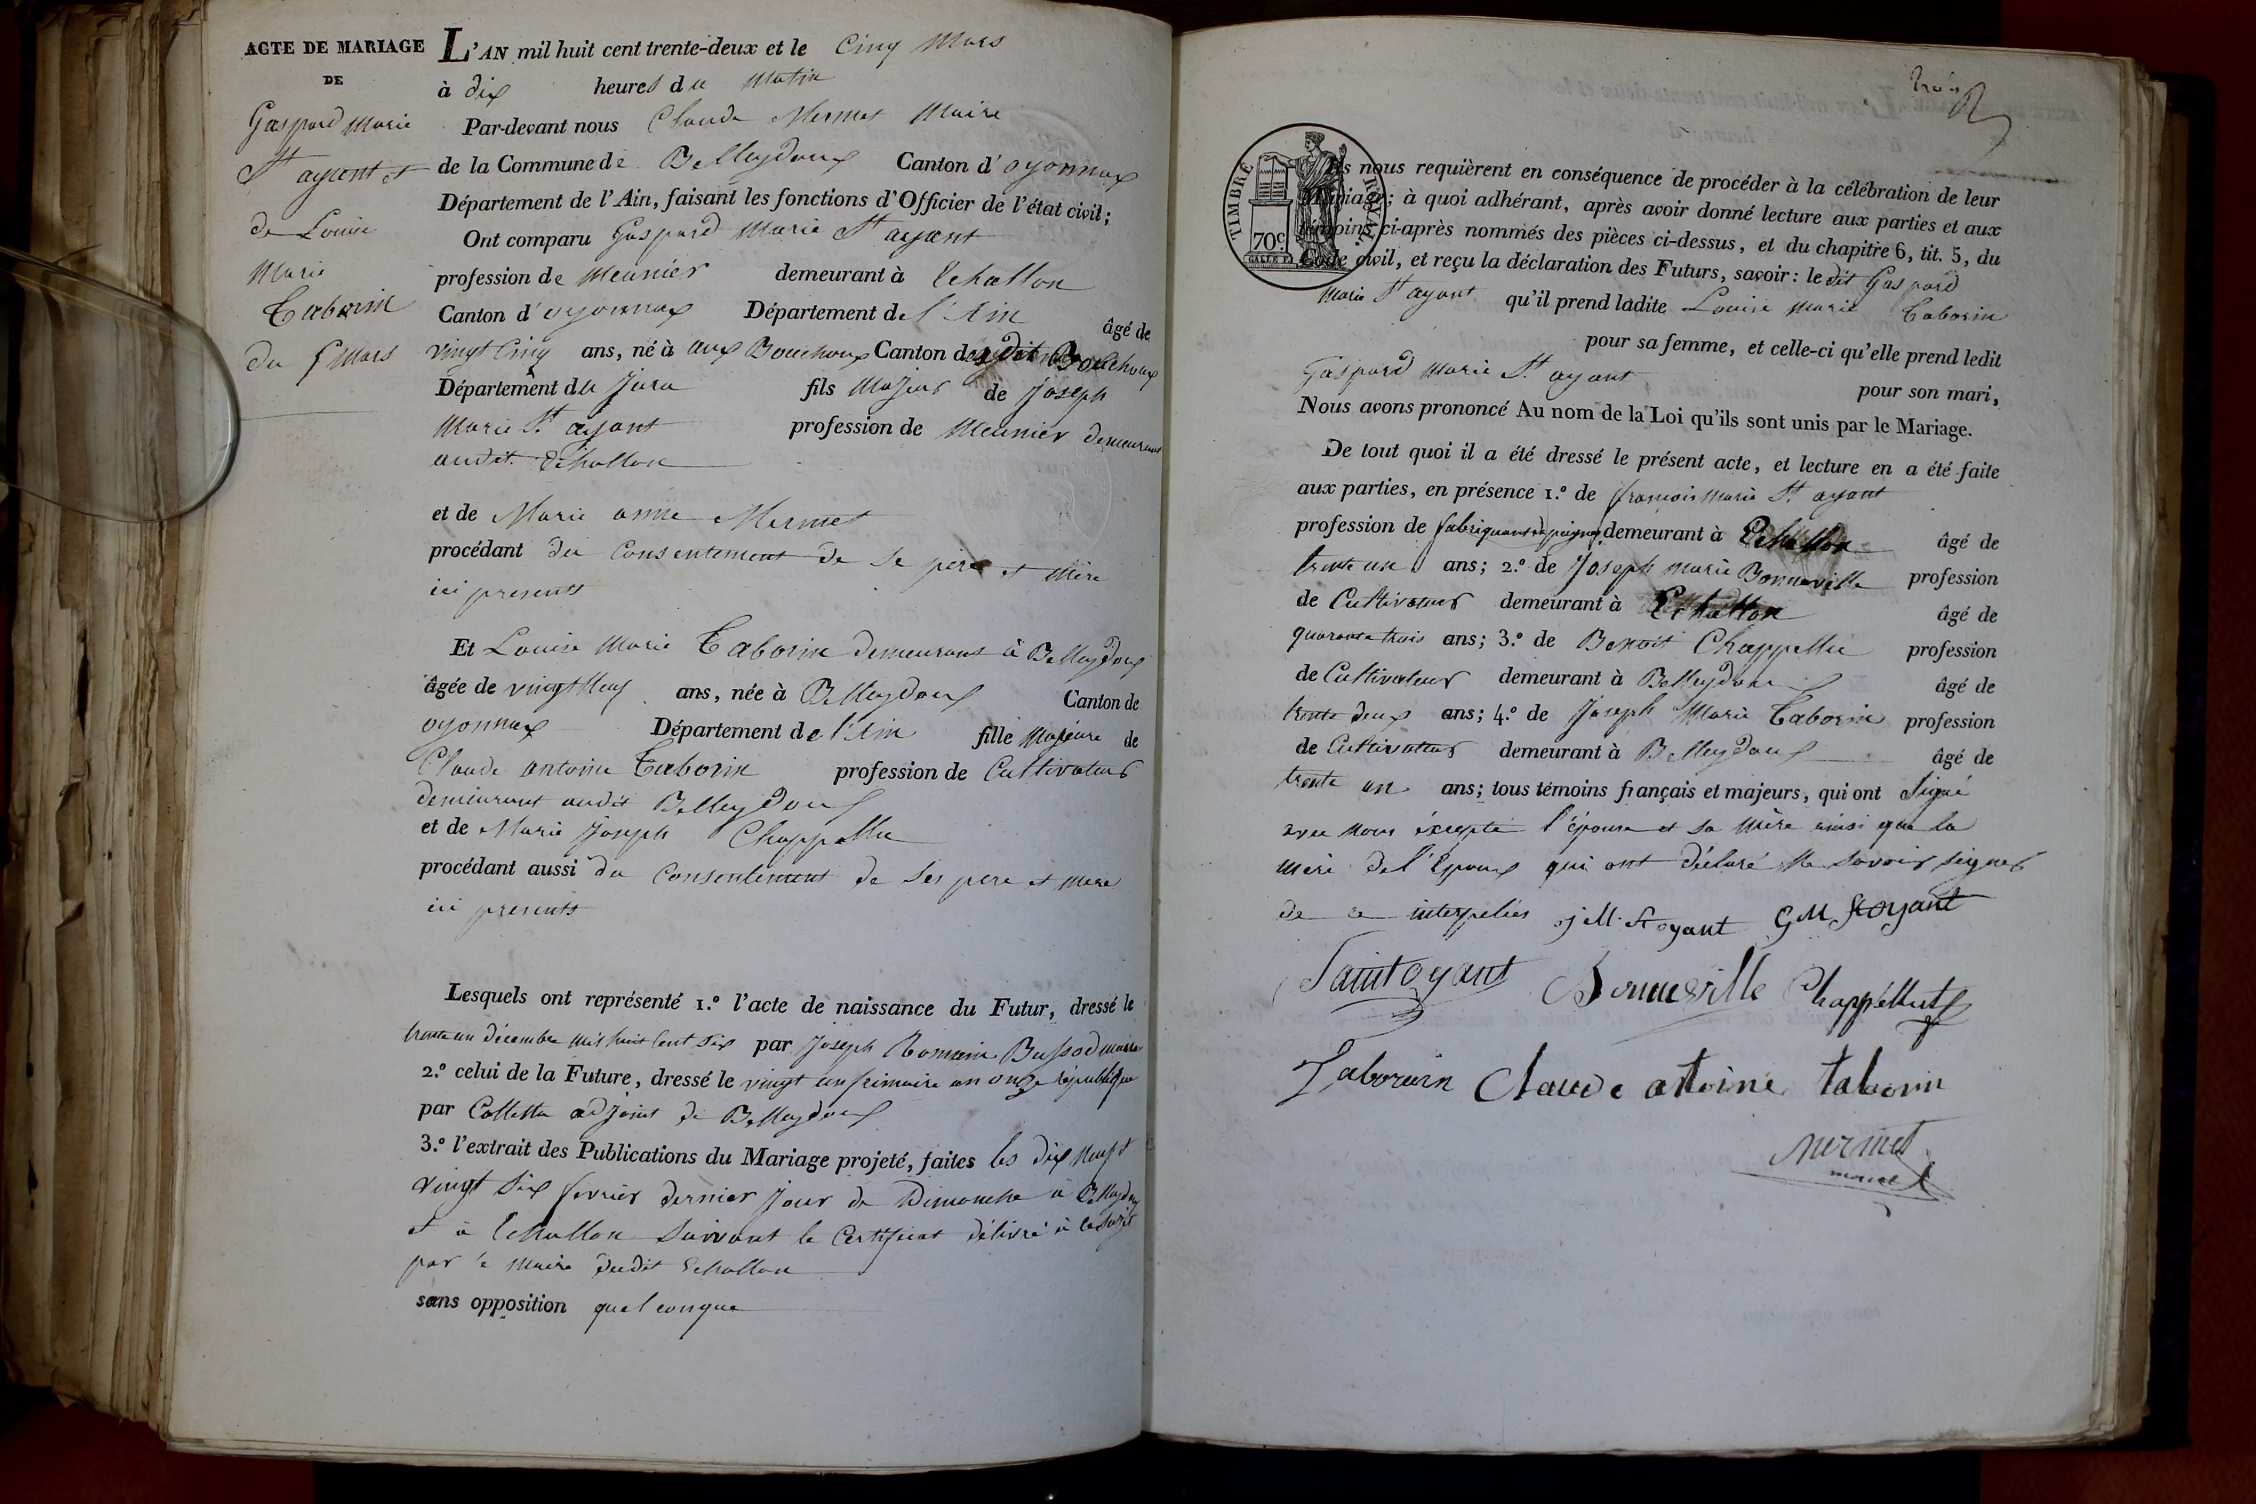 ACTE DE MARIAGE
DE
Gaspard Marie
St ayant et
de Louise
Marie
Taborin
du 5 Mars
L'AN mil huit cent trente-deux et le Cinq Mars
à dix heures du Matin
Par-devant nous Claude Mermet Maire
de la Commune de Belleydoux Canton d'oyonnax
Département de l'Ain, faisant les fonctions d'Officier de l'état civil;
Ont comparu Gaspard Marie St ayant
profession de Meunier demeurant à Echallon
Canton d'oyonnax Département de l'Ain âgé de
vingt Cinq ans, né à aux Bouchoux Canton desdits Bouchoux
Département du Jura fils Majeur de Joseph
Marie St ayant profession de Meunier demeurant
audit Echallon
et de Marie anne Mermet
procédant du Consentement de Se père et Mère
ici presents
Et Louise Marie Taborin demeurant à Belleydoux
âgée de vingt Neuf ans, née à Belleydoux Canton de
oyonnax Département de l'Ain fille Majeure de
Claude antoine Taborin profession de Cultivateur
demeurant audit Belleydoux
et de Marie Joseph Chappellu
procédant aussi du Consentement de Ses pere et mere
ici presents
Lesquels ont représenté 1.º l'acte de naissance du Futur, dressé le
trente un décembre mil huit Cent Six par Joseph Romain Bussod maire
2.º celui de la Future, dressé le vingt un frimaire an onze république
par Colletta adjoint de Belleydoux
3.º l'extrait des Publications du Mariage projeté, faites les dix Neuf et
vingt Six fevrier dernier Jour de Dimanche à Belleydoux
et à Echallon Suivant le Certificat délivré à le sujet
par le Maire dudit Echallon
sans opposition quelconque
TIMBRE ROYAL
70 c.
Ils nous requièrent en conséquence de procéder à la célébration de leur
Mariage; à quoi adhérant, après avoir donné lecture aux parties et aux
témoins ci-après nommés des pièces ci-dessus, et du chapitre 6, tit. 5, du
Code civil, et reçu la déclaration des Futurs, savoir: ledit Gaspard
Marie St ayant qu'il prend ladite Louise Marie Taborin
pour sa femme, et celle-ci qu'elle prend ledit
Gaspard Marie St. ayant pour son mari,
Nous avons prononcé Au nom de la Loi qu'ils sont unis par le Mariage.
De tout quoi il a été dressé le présent acte, et lecture en a été faite
aux parties, en présence 1.º de françois Marie St. ayant
profession de fabriquant de peignes demeurant à Echallon âgé de
trente un ans; 2.º de Joseph Marie Bonneville profession
de Cultivateur demeurant à Echallon âgé de
quarante trois ans; 3.º de Benoit Chappellu profession
de Cultivateur demeurant à Belleydoux âgé de
trente deux ans; 4.º de Joseph Marie Taborin profession
de Cultivateur demeurant à Belleydoux âgé de
trente un ans; tous témoins français et majeurs, qui ont Signé
avec Nous excepté l'épouse et Sa Mère ainsi que la
mère de l'Epoux qui ont déclaré Ne Savoir Signer
de ce interpellés j M. St oyant GM St oyant
Saint Oyant Bonneville Chappéllut
Taborin Claude antoine taborin
Mermet
maire